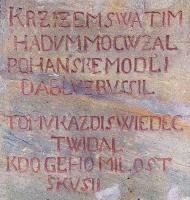 KRZIZEM SWATIM
HADUM MOC WZAL
POHANSKE MODLI
DABLU ZRUSSIL
TOMU KAZDI SWIEDEC
TWIDAL
KDO GEHO MILOST
SKUSIL